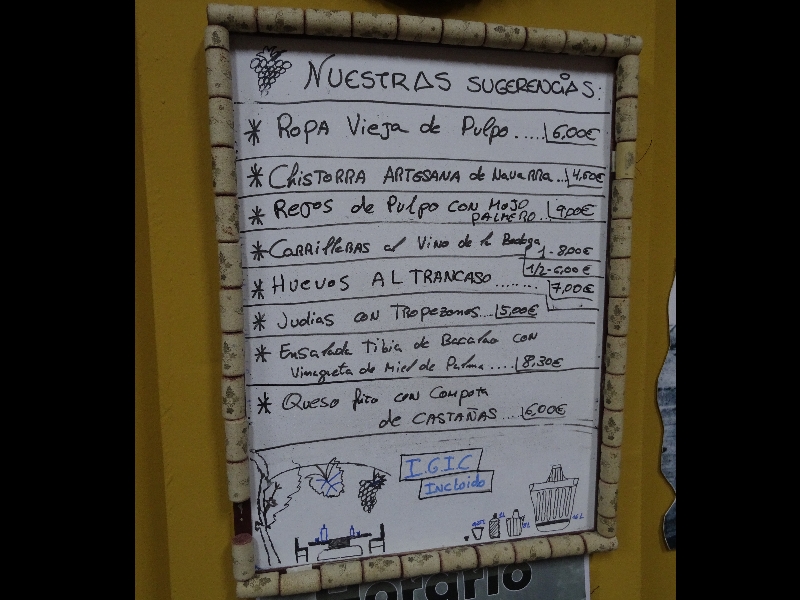 NUESTRAS SUGERENCIAS:
* ROPA Vieja de Pulpo ..... 6,00€
* Chistorra ARTESANA de Navarra... 4,60€
* Rejos de Pulpo con MOJO
PALMERO... 9,00€
* Carrilleras al Vino de la Bodega
1 - 8,00€
1/2 - 6,00€
* HUEVOS AL TRANCASO ........ 7,00€
* Judías con Tropezones... 5,00€
* Ensalada Tibia de Bacalao con
Vinagreta de Miel de Palma .... 8,30€
* Queso frito con Compota
de CASTAÑAS .... 6,00€
I.G.I.C
Incluido
Horario